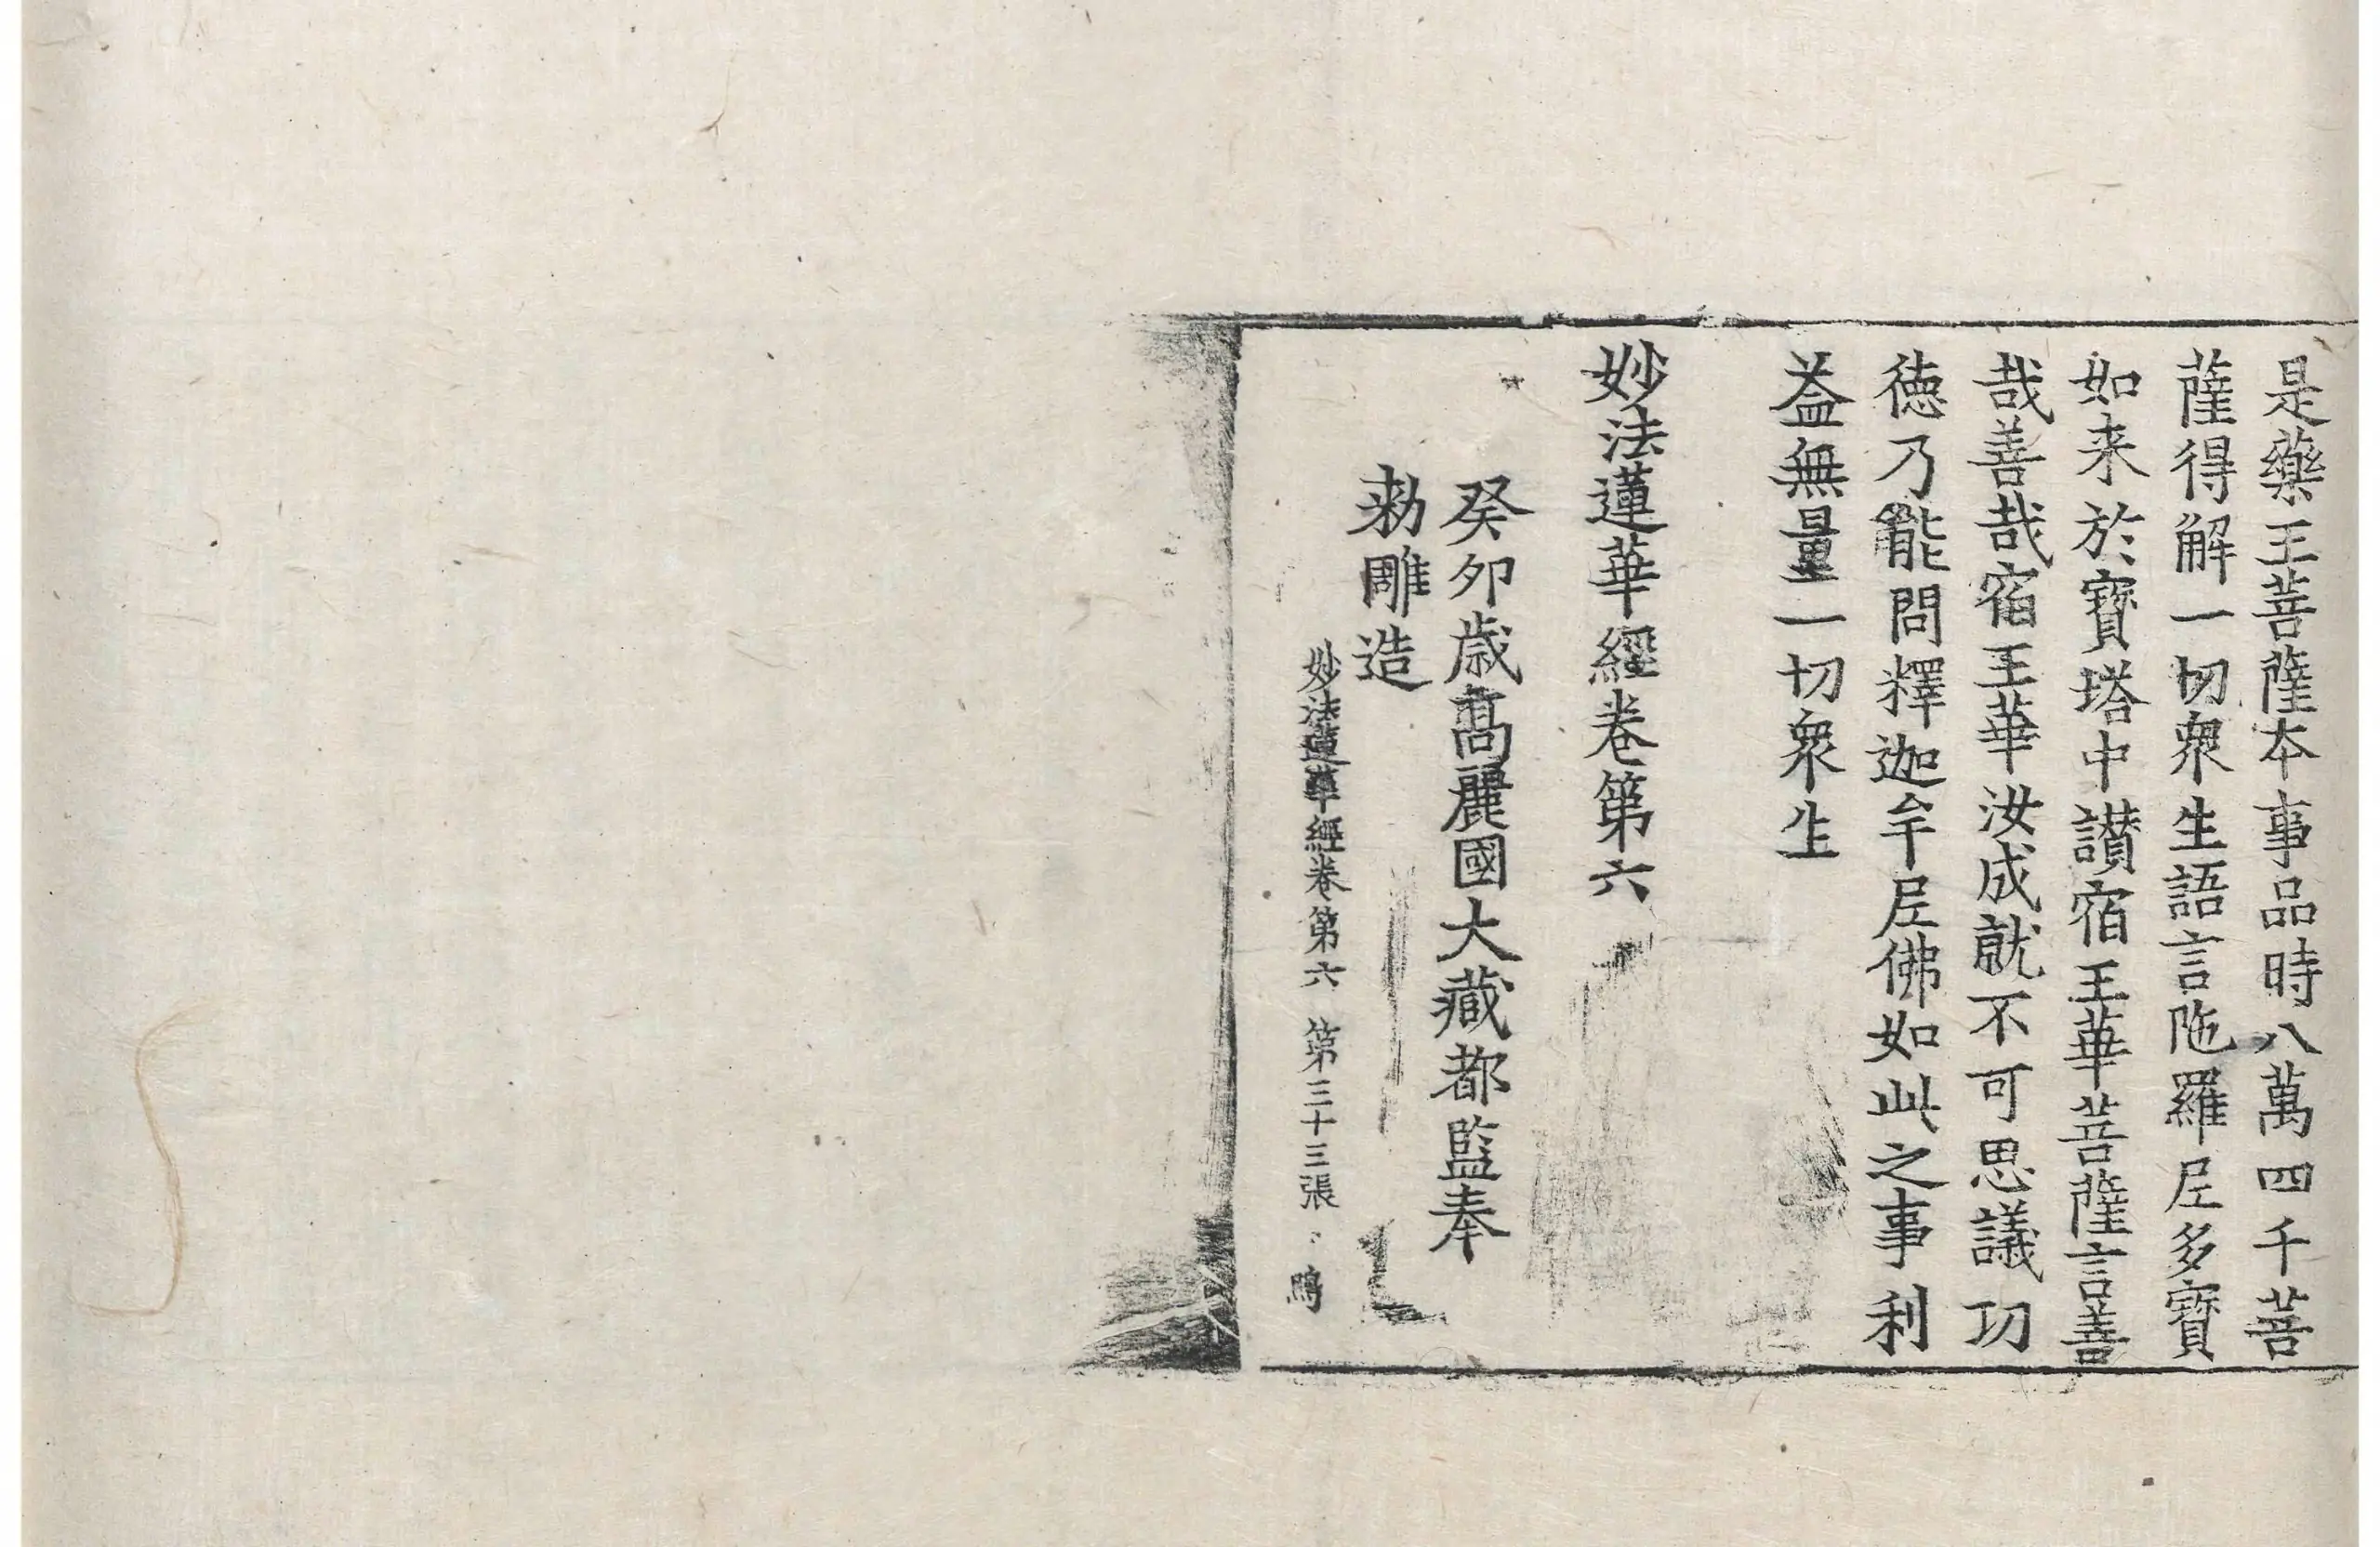 是藥王菩薩本事品時八萬四千菩
薩得解一切衆生語言陁羅尼多寶
如来於寶塔中讃宿王華菩薩言善
哉善哉宿王華汝成就不可思議功
徳乃能問釋迦牟尼佛如此之事利
益無量一切衆生
妙法蓮華經卷第六
癸卯歳髙麗國大藏都監奉
勑雕造
妙法蓮華經卷第六 第三十三張 鳴